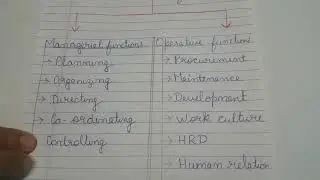 Managerial functions
→ Planning
→ Organizing
→ Directing
→ Co-ordinating
Controlling
Operative function
→ Procurement
→ Maintenance
→ Development
→ Work culture
→ HRD
→ Human relation